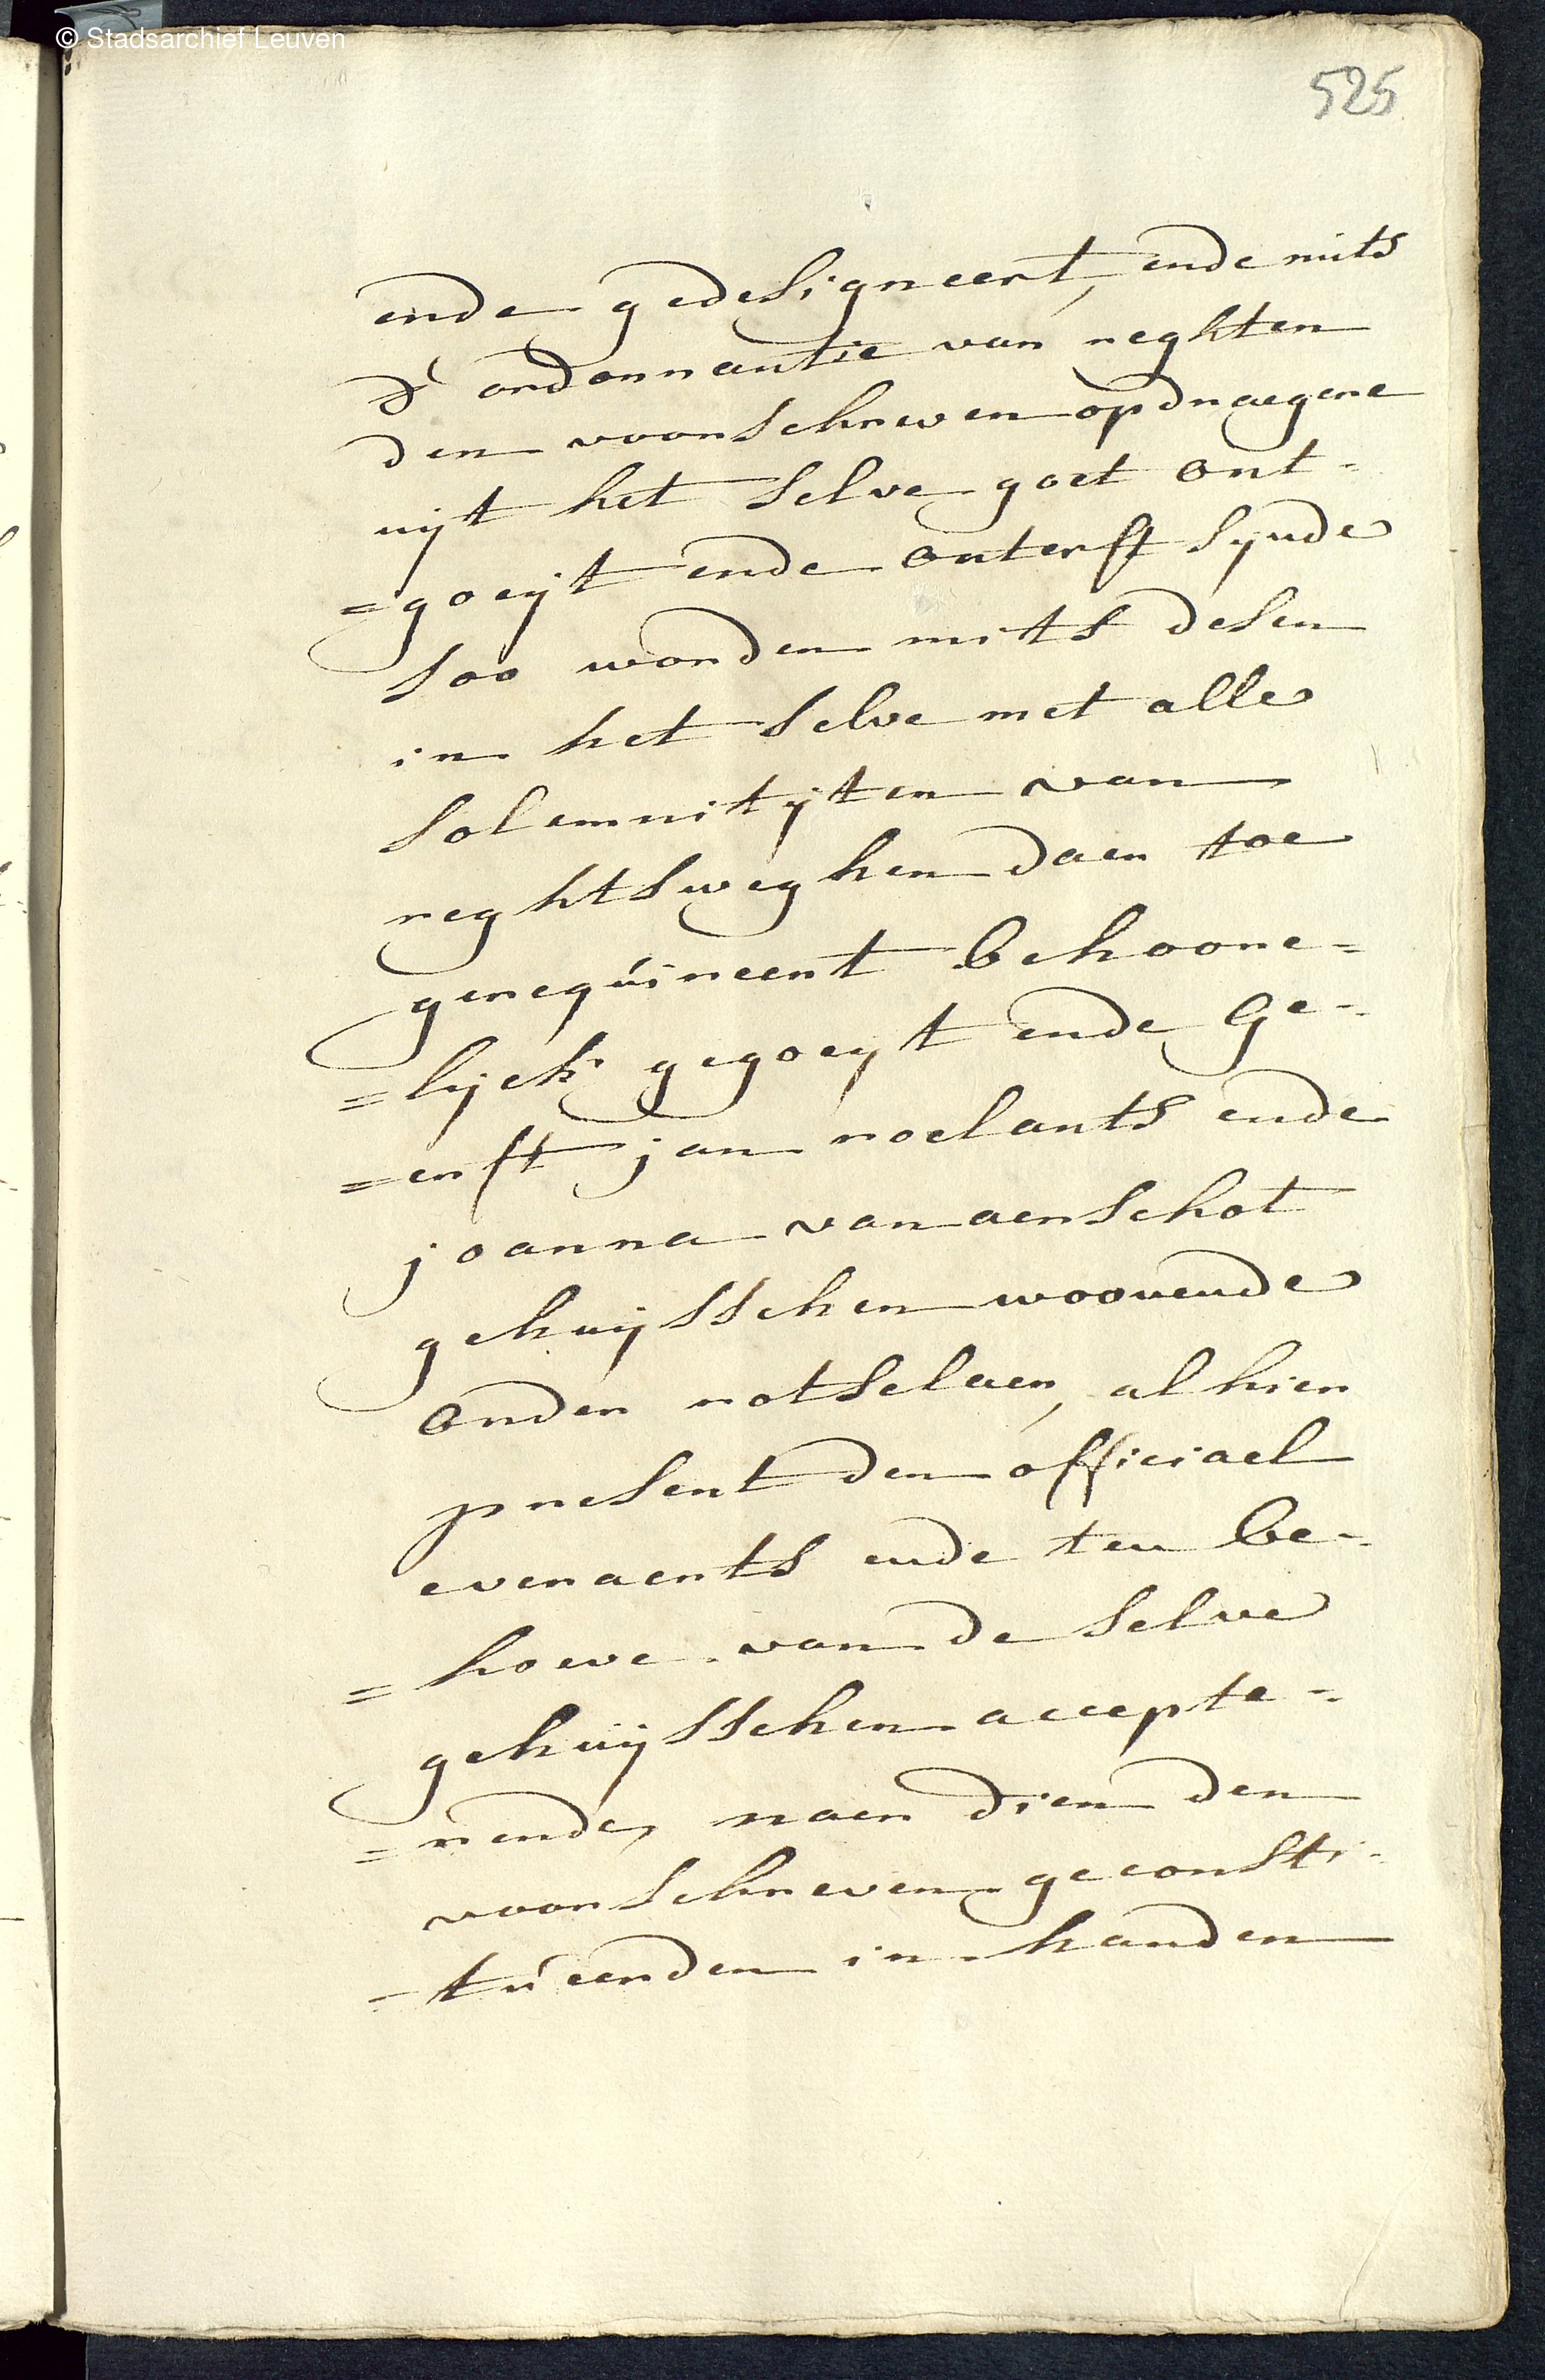 © Stadsarchief Leuven
525
ende gedesigneert, ende mits
d' ordonnantie van reghten
den voorschreven opdraegere
uijt het selve goet ont-
=goeijt ende onterft synde
soo worden mits desen
in het selve met alle
solemnitijten van
reghtsweghen daer toe
gerequireert behoore=
=lijck gegoeyt ende ge-
=erft jan roelants ende
joanna van aerschot
gehuijsschen woonende
onder rotselaer, alhier
present den officiael
everaerts ende ten be-
=hoeve van de selve
gehuijsschen accepte-
=rende, naer dien den
voorschreven geconsti-
-tueerden in handen